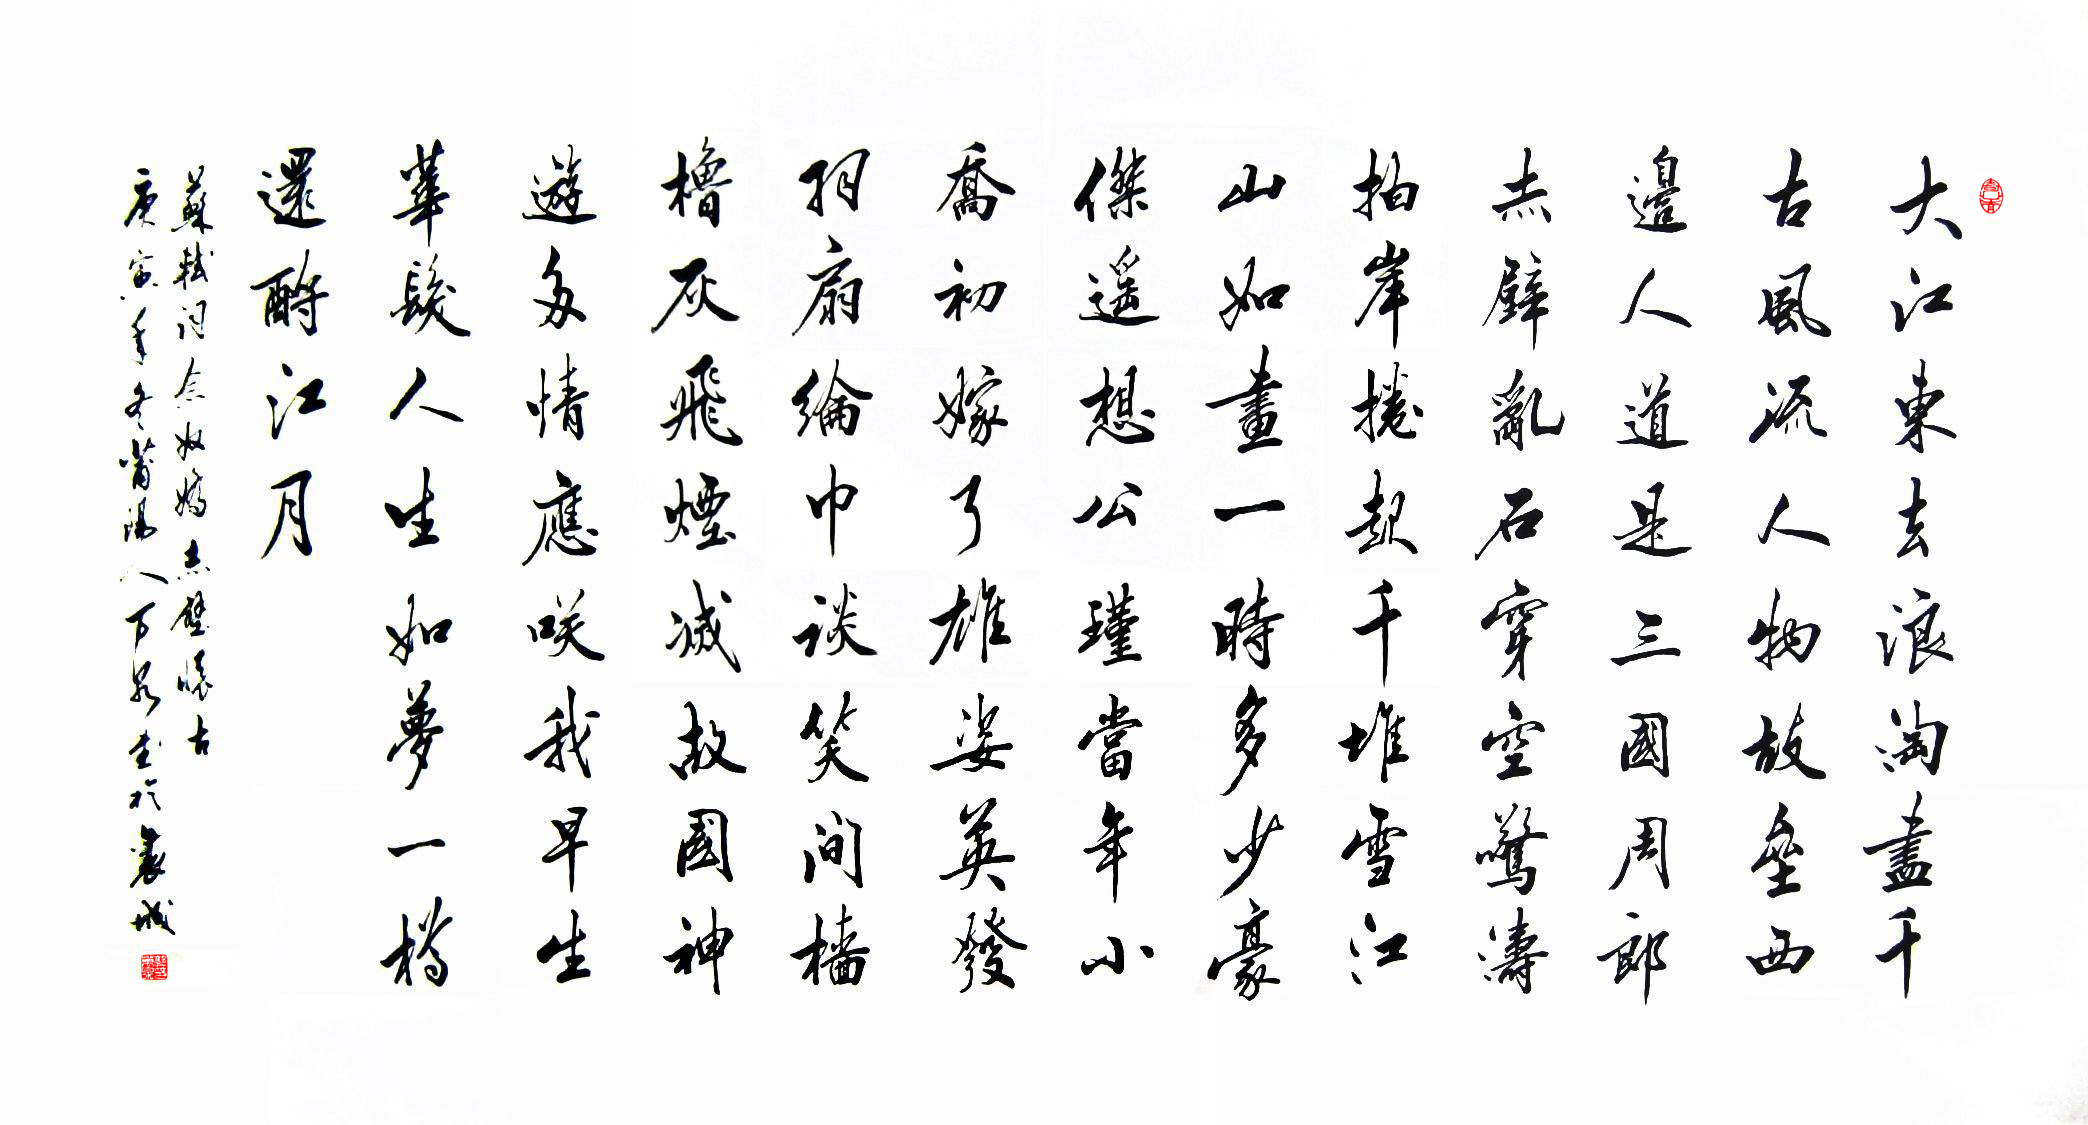 大江東去浪淘盡千
古風流人物故壘西
邊人道是三國周郎
赤壁亂石穿空驚濤
拍岸捲起千堆雪江
山如畫一時多少豪
傑遥想公瑾當年小
喬初嫁了雄姿英發
羽扇綸巾談笑间檣
櫓灰飛煙滅故國神
遊多情應咲我早生
華髮人生如夢一樽
還酹江月
蘇軾词念奴嬌赤壁懷古
庚寅年冬莆陽人下泉書於襄城